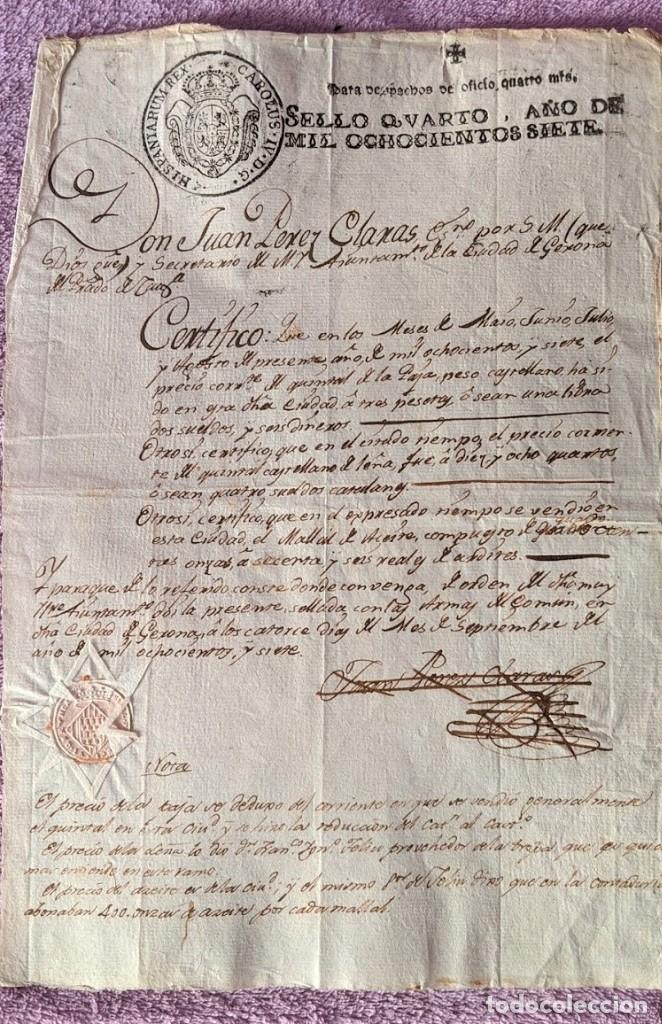 HISPANIARUM REX. CAROLUS. IV. D. G.
Para despachos de oficio, quatro mrs.
SELLO QVARTO, AÑO DE
MIL OCHOCIENTOS SIETE.
Don Juan Perez Claras, Esno por S. M. (que
Dios gue) y Secretario del My Ajuntamto de la Ciudad de Gerona
Certifico: Que en los Meses de Maio, Junio, Julio,
y Agosto del presente año, de mil ochocientos, y siete, el
precio corrte del quintal de la Paja, peso castellano, ha si
do en esta dha Ciudad, â tres pesetas, ô sean una libra
dos sueldos, y seis dineros.
Otrosi, certifico, que en el citado tiempo, el precio corrien-
te del quintal castellano de leña, fue, â diez, y ocho quartos,
ô sean quatro sueldos catalanes.
Otrosi, certifico, que en el expresado tiempo se vendió en
esta Ciudad, el Mallal de Aceite, compuesto de quatrocien-
tas onzas, â secenta y seis reales de ardites.
Y
paraque de lo referido conste donde convenga, de orden del dho muy
Itre Ajuntamto doi la presente, sellada con las Armas del Comun, en
dha Ciudad de Gerona, â los catorce dias del Mes de Septiembre del
año de mil ochocientos, y siete.
Juan Perez Claras
Nota
El precio de la paja se deduxo del corriente en que se vendió generalmente
el quintal en esta ciud, y se hizo la reduccion del Catn al Castno
El precio de la Lena lo dio Dn Franco Feliu provehedor de la tropa, que es quien
mas entiende en este ramo.
El precio del azeite es de la ciud; y el mismo Feliu dixo que en la contaduria
abonaban 400 onzas de azeite por cada mallal.
todocoleccion